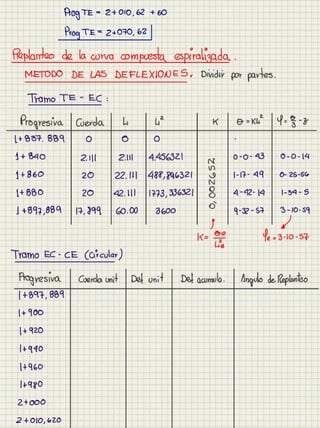 Prog TE = 2+010,62 + 60
Prog TE = 2+070,62
Replanteo de la curva compuesta espiralizada.
METODO DE LAS DEFLEXIONES. Dividir por partes.
Tramo TE - EC:
Progresiva Cuerda Li Li² K θ=KLi² φ=θ/3-z
1+837.889 0 0 0
1+840 2.111 2.111 4.456321 0-0-43 0-0-14
1+860 20 22.111 488,896321 1-17-49
1+880 20 42.111 1773,336321 4-42-14 1-34-5
1+897,889 17,899 60.00 3600 9-32-57 3-10-59
K = θe/Le² φe=3-10-57
Tramo EC - CE (Circular)
Progresiva Cuerda unit Def unit Def acumulo. Angulo de Replanteo
1+897,889
1+900
1+920
1+940
1+960
1+980
2+000
2+010,620